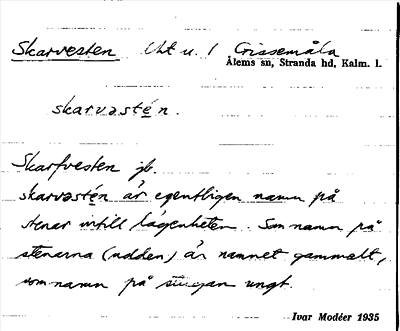 Skarvesten Uht u. / Crissemåla
Ålems sn, Stranda hd, Kalm. l.
skarvəstén.
Skarfvesten jb.
skarvəstén är egentligen namn på
stenar intill lägenheten. Som namn på
stenarna (udden) är namnet gammalt,
som namn på stugan ungt.
Ivar Modéer 1935